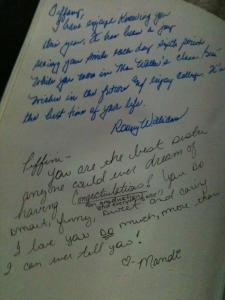 Tiffany,
I have enjoyed knowing you
this year. It has been a joy
seeing your smile each day sixth period
while you were in Mrs. class. Best
wishes in the future & enjoy college. It's
the best time of your life.
Williams
Tiffini -
You are the best sister
anyone could ever dream of
having. Congratulations! You are
on graduation
smart, funny, sweet and caring
I love you so much, more than
I can ever tell you!
♡- Mandi